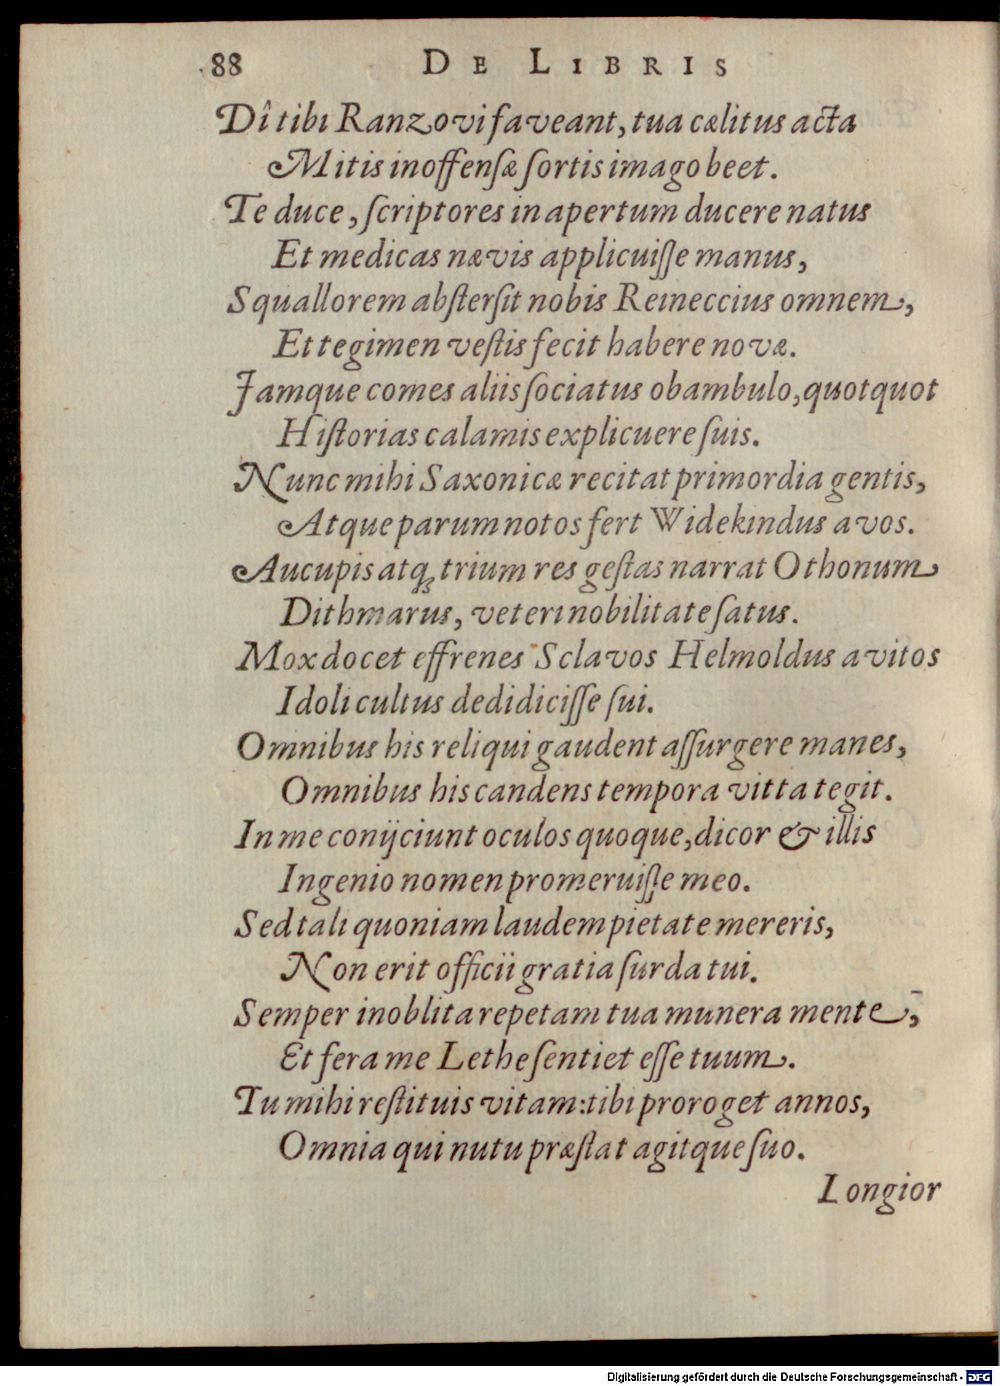 88 DE LIBRIS
Dî tibi Ranzovi faveant, tua cælitus acta
Mitis inoffensæ sortis imago beet.
Te duce, ſcriptores in apertum ducere natus
Et medicas nævis applicuiſſe manus,
Squallorem abſterſit nobis Reineccius omnem,
Et tegimen veſtis fecit habere novæ.
Jamque comes aliis ſociatus obambulo, quotquot
Hiſtorias calamis explicuere ſuis.
Nunc mihi Saxonicæ recitat primordia gentis,
Atque parum notos fert Widekindus avos.
Aucupis atq; trium res geſtas narrat Othonum
Dithmarus, veteri nobilitate ſatus.
Mox docet effrenes Sclavos Helmoldus avitos
Idoli cultus dedidiciſſe ſui.
Omnibus his reliqui gaudent aſſurgere manes,
Omnibus his candens tempora vitta tegit.
In me conijciunt oculos quoque, dicor & illis
Ingenio nomen promeruiſſe meo.
Sed tali quoniam laudem pietate mereris,
Non erit officii gratia ſurda tui.
Semper inoblita repetam tua munera mente,
Et fera me Lethe ſentiet eſſe tuum.
Tu mihi reſtituis vitam: tibi proroget annos,
Omnia qui nutu præſtat agitque ſuo.
Longior
Digitalisierung gefördert durch die Deutsche Forschungsgemeinschaft - DFG